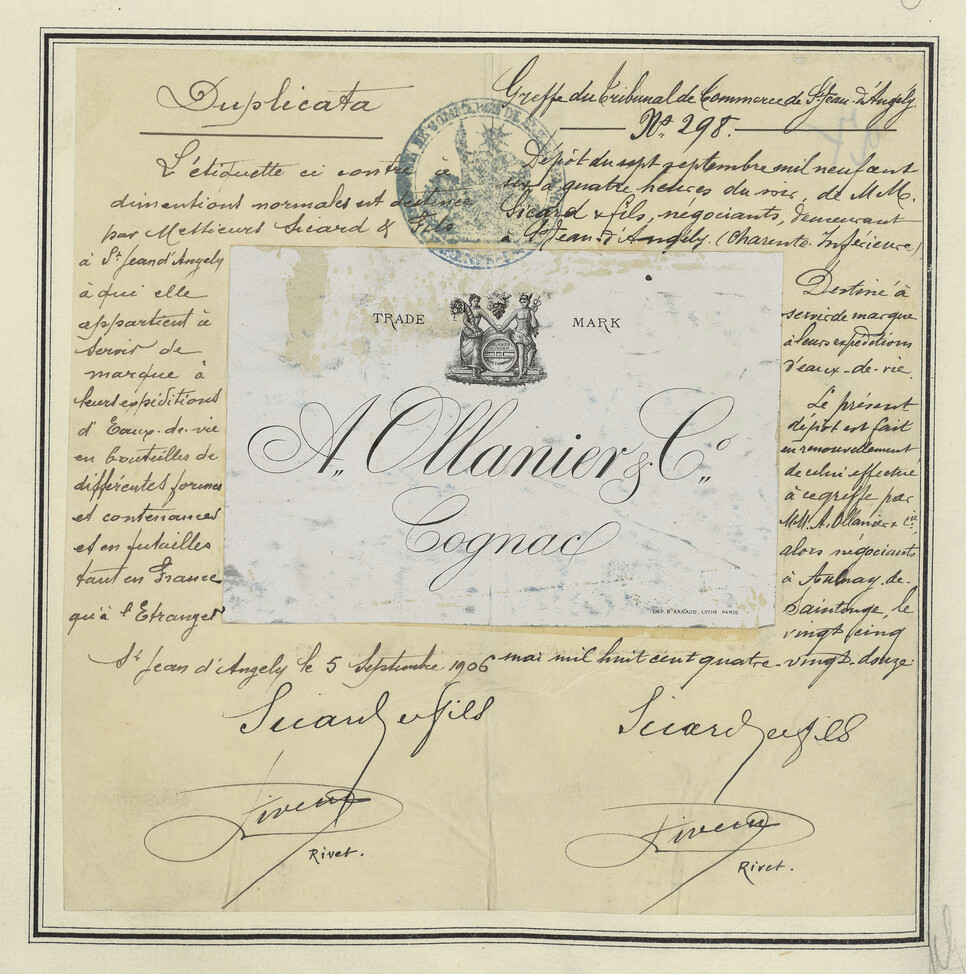 Duplicata
L'étiquette ci contre à
dimentions normales est destinée
par Messieurs Sicard & Fils
à St Jean d'Angely
à qui elle
appartient à
servir de
marque à
leurs expéditions
d'Eaux-de-vie
en bouteilles de
différentes formes
et contenances
et en futailles
tant en France
qu'à l'Etranger
St Jean d'Angely le 5 Septembre 1906
Sicard et fils
Rivet.
Greffe du Tribunal de Commerce de St-Jean-d'Angély.
No 298.
Dépôt du sept septembre mil neuf cent
six à quatre heures du soir, de M.M.
Sicard & fils, négociants, demeurant
à St Jean-d'Angély. (Charente Inférieure)
Destiné à
servir de marque
à leurs expéditions
d'eaux-de-vie.
Le présent
dépôt est fait
en renouvellement
de celui effectué
à ce greffe par
M.M. A. Ollanier & Cie
alors négociants
à Aulnay-de-
Saintonge le
vingt-cinq
mai mil huit cent quatre-vingt-douze
Sicard et fils
Rivet.
TRADE MARK
A,, Ollanier & Co,,
Cognac
IMP. B. ARNAUD, LYON PARIS